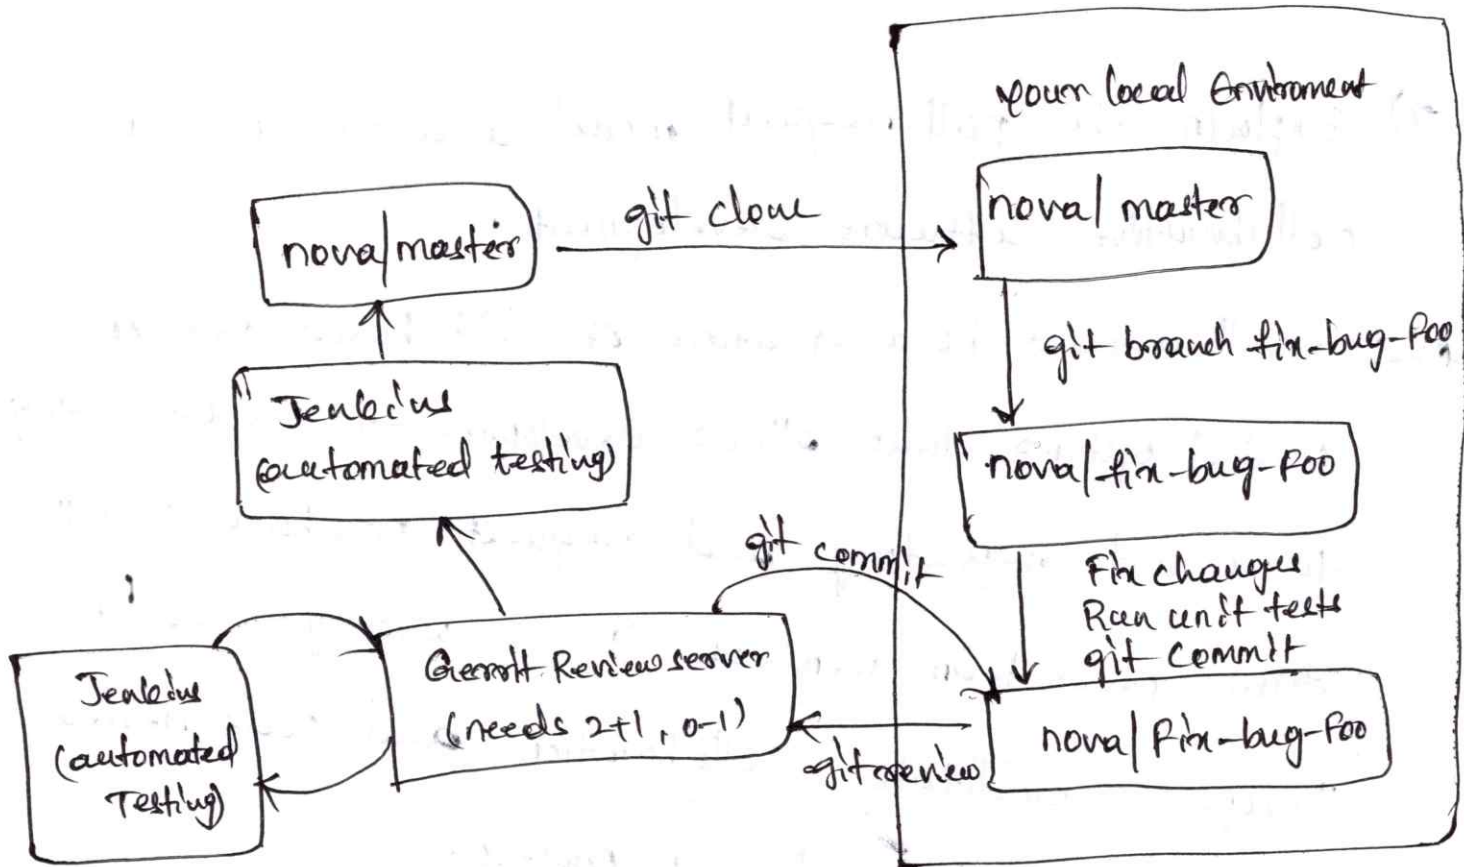 your local Enviroment
nova/master
git clone
nova/master
git branch fix-bug-foo
Jenkins
(automated testing)
nova/fix-bug-foo
git commit
Fix changes
Run unit tests
git commit
Jenkins
(automated
Testing)
Gerrit Review server
(needs 2+1, 0-1)
git review
nova/Fix-bug-foo